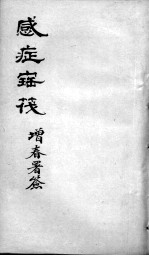 感症宝筏
增春署簽